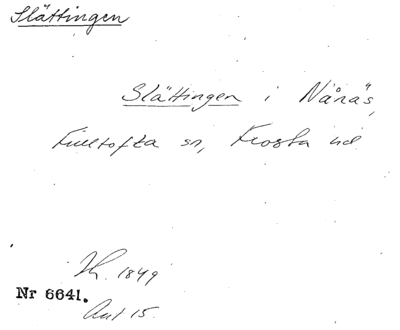 Slättingen
Slättingen i Nånäs,
Fulltofta sn, Frosta hd
Jh. 1849
Nr 6641.
Ant 15.